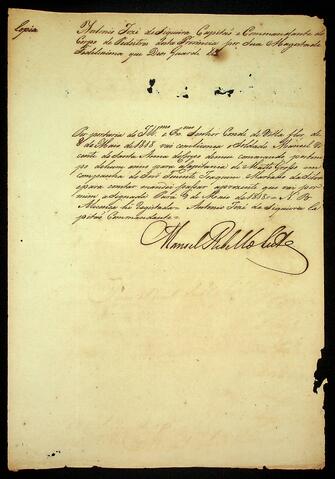 Copia
Antonio José de Siqueira Capitaõ e Commandante do
Corpo de Pedestres desta Provincia por Sua Magestade
Fedelissima que Deos Guarde &
Por portaria do Illmo e Exmo Senhor Conde de Villa flor, de
8 de Maio de 1818, vai continuar o Soldado Manuel Vi
cente de Santa Anna do Corpo de meu comando por tem
po de hum anno para a Capitania de Matto Grosso em
companhia do Snr Tenente Joaquim Machado da
e para constar mandei passar a prezente que vai por
mim assignada Pará 9 de Maio de 1818
Antonio José de Siqueira Ca
pitaõ Commandante
Manoel Rebello